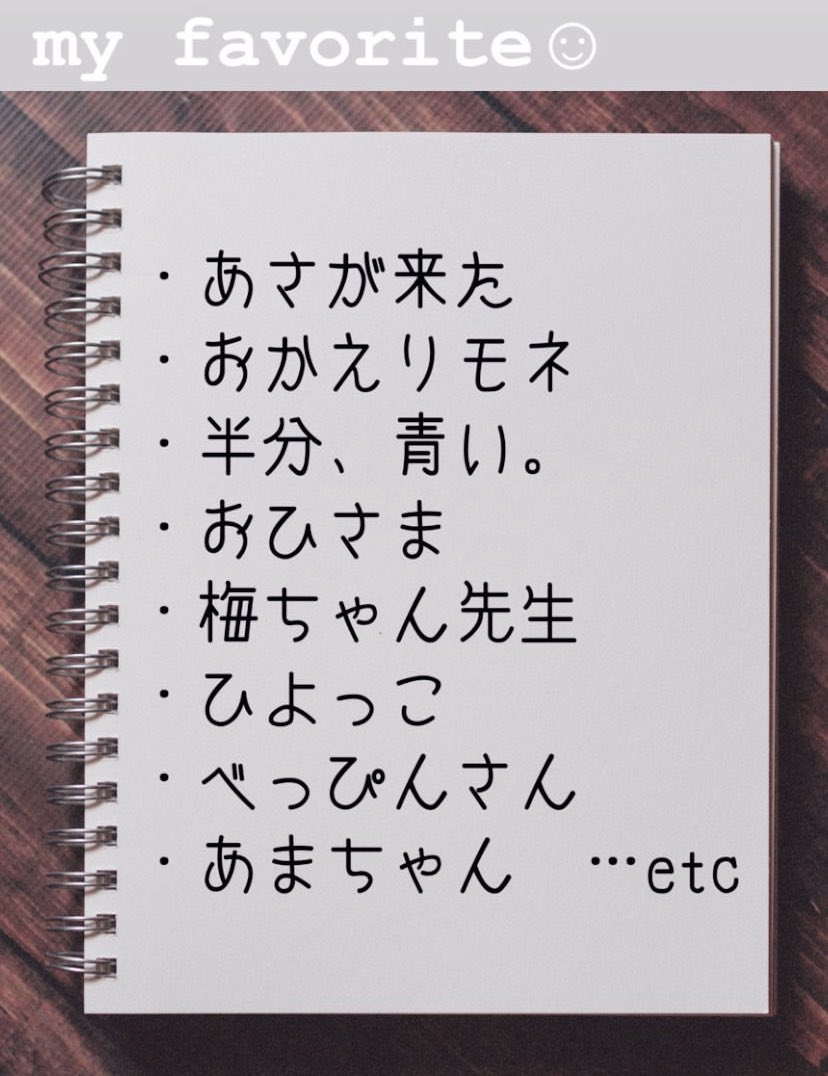 my favorite☺
・あさが来た
・おかえりモネ
・半分、青い。
・おひさま
・梅ちゃん先生
・ひよっこ
・べっぴんさん
・あまちゃん …etc